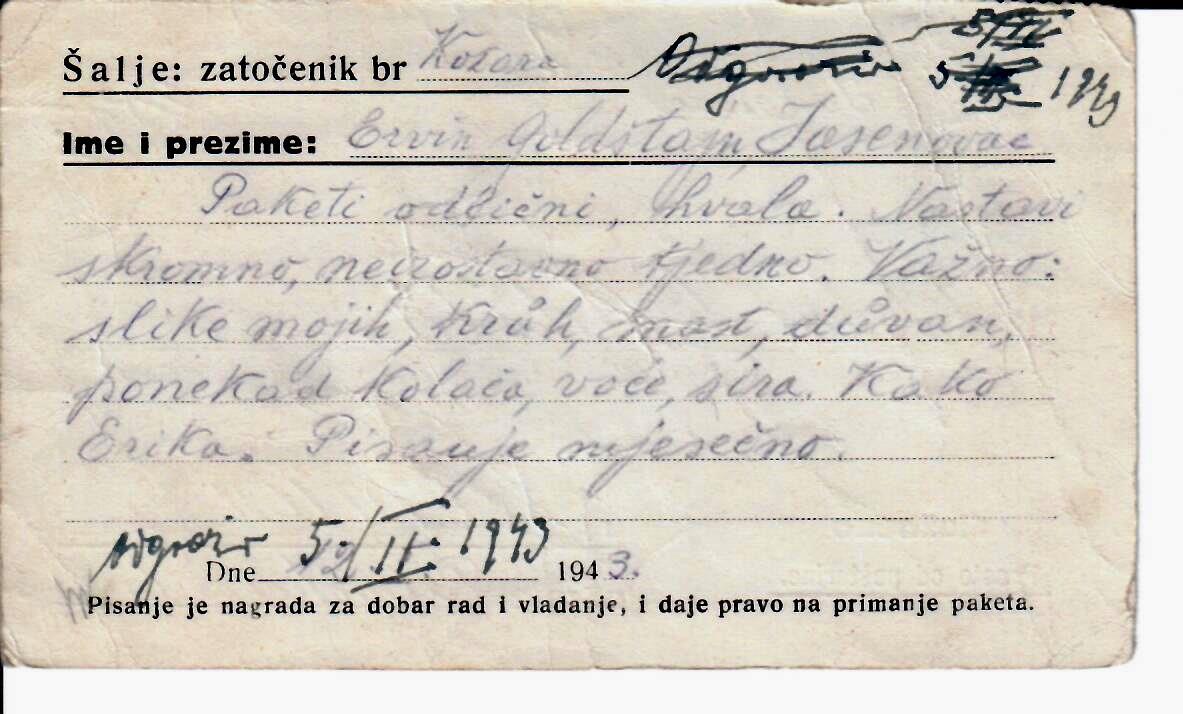 Šalje: zatočenik br Kožara Odgovorio 5/II
5/II 1943
Ime i prezime: Ervin Goldštajn Jasenovac
Paketi odlični, hvala. Nastavi
skromno, neizostavno tjedno. Važno:
slike mojih, Kruh, mast, duvan,
ponekad Kolača, voće, sira. Kako
Erika. Pisanje mjesečno.
5./II. 1943
Dne 1943.
Pisanje je nagrada za dobar rad i vladanje, i daje pravo na primanje paketa.